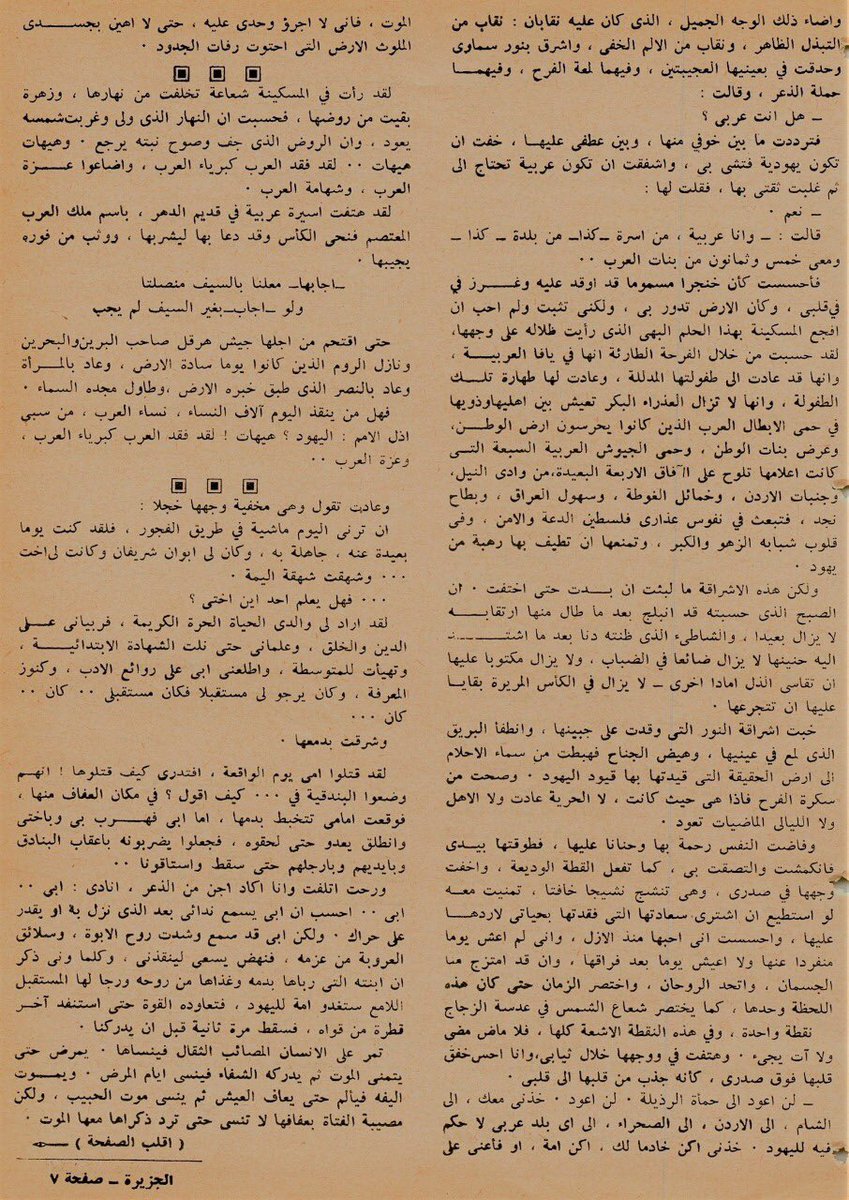 واضاء ذلك الوجه الجميل ، الذى كان عليه نقابان : نقاب من
التبذل الظاهر ، ونقاب من الالم الخفى ، واشرق بنور سماوى
وحدقت في بعينيها العجيبتين ، وفيهما لمعة الفرح ، وفيهمـــا
حملة الذعر ، وقالت :
ــ هل انت عربى ؟
فترددت ما بين خوفي منها ، وبين عطفى عليهـا ، خفت ان
تكون يهودية فتشى بى ، واشفقت ان تكون عربية تحتاج الى
ثم غلبت ثقتى بها ، فقلت لها :
ــ نعم ٠
قالت : ــ وانا عربية ، من اسرة ــكذاــ من بلدة ــ كذا ــ
ومعى خمس وثمانون من بنات العرب ٠٠
فأحسست كأن خنجرا مسموما قد اوقد عليه وغـــرز في
في قلبى ، وكأن الارض تدور بى ، ولكنى تثبت ولم احب ان
افجع المسكينة بهذا الحلم البهى الذى رأيت ظلاله على وجهها،
لقد حسبت من خلال الفرحة الطارئة انها في يافا العربيـــة ،
وانها قد عادت الى طفولتها المدللة ، وعادت لها طهارة تلـــك
الطفولة ، وانها لا تزال العذراء البكر تعيش بين اهليهاوذويها
في حمى الابطال العرب الذين كانوا يحرسون ارض الوطـــن،
وعرض بنات الوطن ، وحمى الجيوش العربية السبعة التـــى
كانت اعلامها تلوح على الآفاق الاربعة البعيدة،من وادى النيل،
وجنبات الاردن ، وخمائل الغوطة ، وسهول العراق ، وبطاح
نجد ، فتبعث في نفوس عذارى فلسطين الدعة والامن ، وفى
قلوب شبابه الزهو والكبر ، وتمنعها ان تطيف بها رهبة من
يهود ٠
ولكن هذه الاشراقة ما لبثت ان بـــدت حتى اختفت ٠ ان
الصبح الذى حسبته قد انبلج بعد ما طال منها ارتقابـــه
لا يزال بعيدا ، والشاطىء الذى ظنته دنا بعد ما اشتـــــد
اليه حنينها لا يزال ضائعا في الضباب ، ولا يزال مكتوبا عليها
ان تقاسى الذل امادا اخرى ــ لا يزال في الكأس المريرة بقايـا
عليها ان تتجرعها ٠
خبت اشراقة النور التى وقدت على جبينها ، وانطفأ البريق
الذى لمع في عينيها ، وهيض الجناح فهبطت من سماء الاحلام
الى ارض الحقيقة التى قيدتها بها قيود اليهود ٠ وصحت من
سكرة الفرح فاذا هى حيث كانت ، لا الحرية عادت ولا الاهل
ولا الليالى الماضيات تعود ٠
وفاضت النفس رحمة بها وحنانا عليها ، فطوقتها بيـــدى
فانكمشت والتصقت بى ، كما تفعل القطة الوديعة ، واخفت
وجهها في صدرى ، وهى تنشج نشيجا خافتا ، تمنيت معـــه
لو استطيع ان اشترى سعادتها التى فقدتها بحياتى لاردهـا
عليها ، واحسست انى احبها منذ الازل ، وانى لم اعش يوما
منفردا عنها ولا اعيش يوما بعد فراقها ، وان قد امتزج منا
الجسمان ، واتحد الروحان ، واختصر الزمان حتى كان هذه
اللحظة وحدها ، كما يختصر شعاع الشمس في عدسة الزجاج
نقطة واحدة ، وفي هذه النقطة الاشعة كلها ، فلا ماض مضى
ولا آت يجىء ٠ وهتفت في ووجهها خلال ثيابى،وانا احس خفق
قلبها فوق صدرى ، كأنه جذب من قلبها الى قلبى ٠
ــ لن اعود الى حماة الرذيلة ٠ لن اعود ٠ خذنى معك ، الى
الشام ، الى الاردن ، الى الصحراء ، الى اى بلد عربى لا حكم
فيه لليهود ٠ خذنى اكن خادما لك ، اكن امة ، او فأعنى على
الموت ، فانى لا اجرؤ وحدى عليه ، حتى لا اهين بجســـدى
الملوث الارض التى احتوت رفات الجدود ٠
لقد رأت في المسكينة شعاعة تخلفت من نهارها ، وزهرة
بقيت من روضها ، فحسبت ان النهار الذى ولى وغربت شمسه
يعود ، وان الروض الذى جف وصوح نبته يرجع ٠ وهيهات
هيهات ٠٠ لقد فقد العرب كبرياء العرب ، واضاعوا عـــزة
العرب ، وشهامة العرب ٠
لقد هتفت اسيرة عربية في قديم الدهر ، باسم ملك العرب
المعتصم فنحى الكأس وقد دعا بها ليشربها ، ووثب من فوره
يجيبها ٠
ــاجابهاــ معلنا بالسيف منصلتا
ولو ــاجابــبغير السيف لم يجب
حتى اقتحم من اجلها جيش هرقل صاحب البرين والبحرين
ونازل الروم الذين كانوا يوما سادة الارض ، وعاد بالمــرأة
وعاد بالنصر الذى طبق خبره الارض ،وطاول مجده السماء ٠
فهل من ينقذ اليوم آلاف النساء ، نساء العرب ، من سبي
اذل الامم : اليهود ؟ هيهات ! لقد فقد العرب كبرياء العرب ،
وعزة العرب ٠٠
وعادت تقول وهى مخفية وجهها خجلا :
ان ترنى اليوم ماشية في طريق الفجور ، فلقد كنت يوما
بعيدة عنه ، جاهلة به ، وكان لى ابوان شريفان وكانت لى اخت
٠٠٠ وشهقت شهقة اليمة ٠
٠٠٠ فهل يعلم احد اين اختى ؟
لقد اراد لى والدى الحياة الحرة الكريمة ، فربيانى عــلى
الدين والخلق ، وعلمانى حتى نلت الشهادة الابتدائيـــة ،
وتهيأت للمتوسطة ، واطلعنى ابى على روائع الادب ، وكنوز
المعرفة ، وكان يرجو لى مستقبلا فكان مستقبلى ٠٠ كان ٠٠
كان ٠٠٠
وشرقت بدمعها ٠
لقد قتلوا امى يوم الواقعة ، افتدرى كيف قتلوها ! انهــم
وضعوا البندقية في ٠٠٠ كيف اقول ؟ في مكان العفاف منها ،
فوقعت امامى تتخبط بدمها ، اما ابى فهــرب بى وباختى
وانطلق يعدو حتى لحقوه ، فجعلوا يضربونه باعقاب البنادق
وبايديهم وبارجلهم حتى سقط واستاقونا ٠٠
ورحت اتلفت وانا اكاد اجن من الذعر ، انادى : ابى ٠٠
ابى ٠٠ احسب ان ابى يسمع ندائى بعد الذى نزل به او يقدر
على حراك ٠ ولكن ابى قد سمع وشدت روح الابوة ، وسلائق
العروبة من عزمه ، فنهض يسعى لينقذنى ، وكلما ونى ذكر
ان ابنته التى رباها بدمه وغذاها من روحه ورجا لها المستقبل
اللامع ستغدو امة لليهود ، فتعاوده القوة حتى استنفد آخـر
قطرة من قواه ، فسقط مرة ثانية قبل ان يدركنا ٠
تمر على الانسان المصائب الثقال فينساها ٠ يمرض حتى
يتمنى الموت ثم يدركه الشفاء فينسى ايام المرض ٠ ويمــوت
اليفه فيألم حتى يعاف العيش ثم ينسى موت الحبيب ، ولكن
مصيبة الفتاة بعفافها لا تنسى حتى ترد ذكراها معها الموت ٠
( اقلب الصفحة )
الجزيرة ــ صفحة ٧